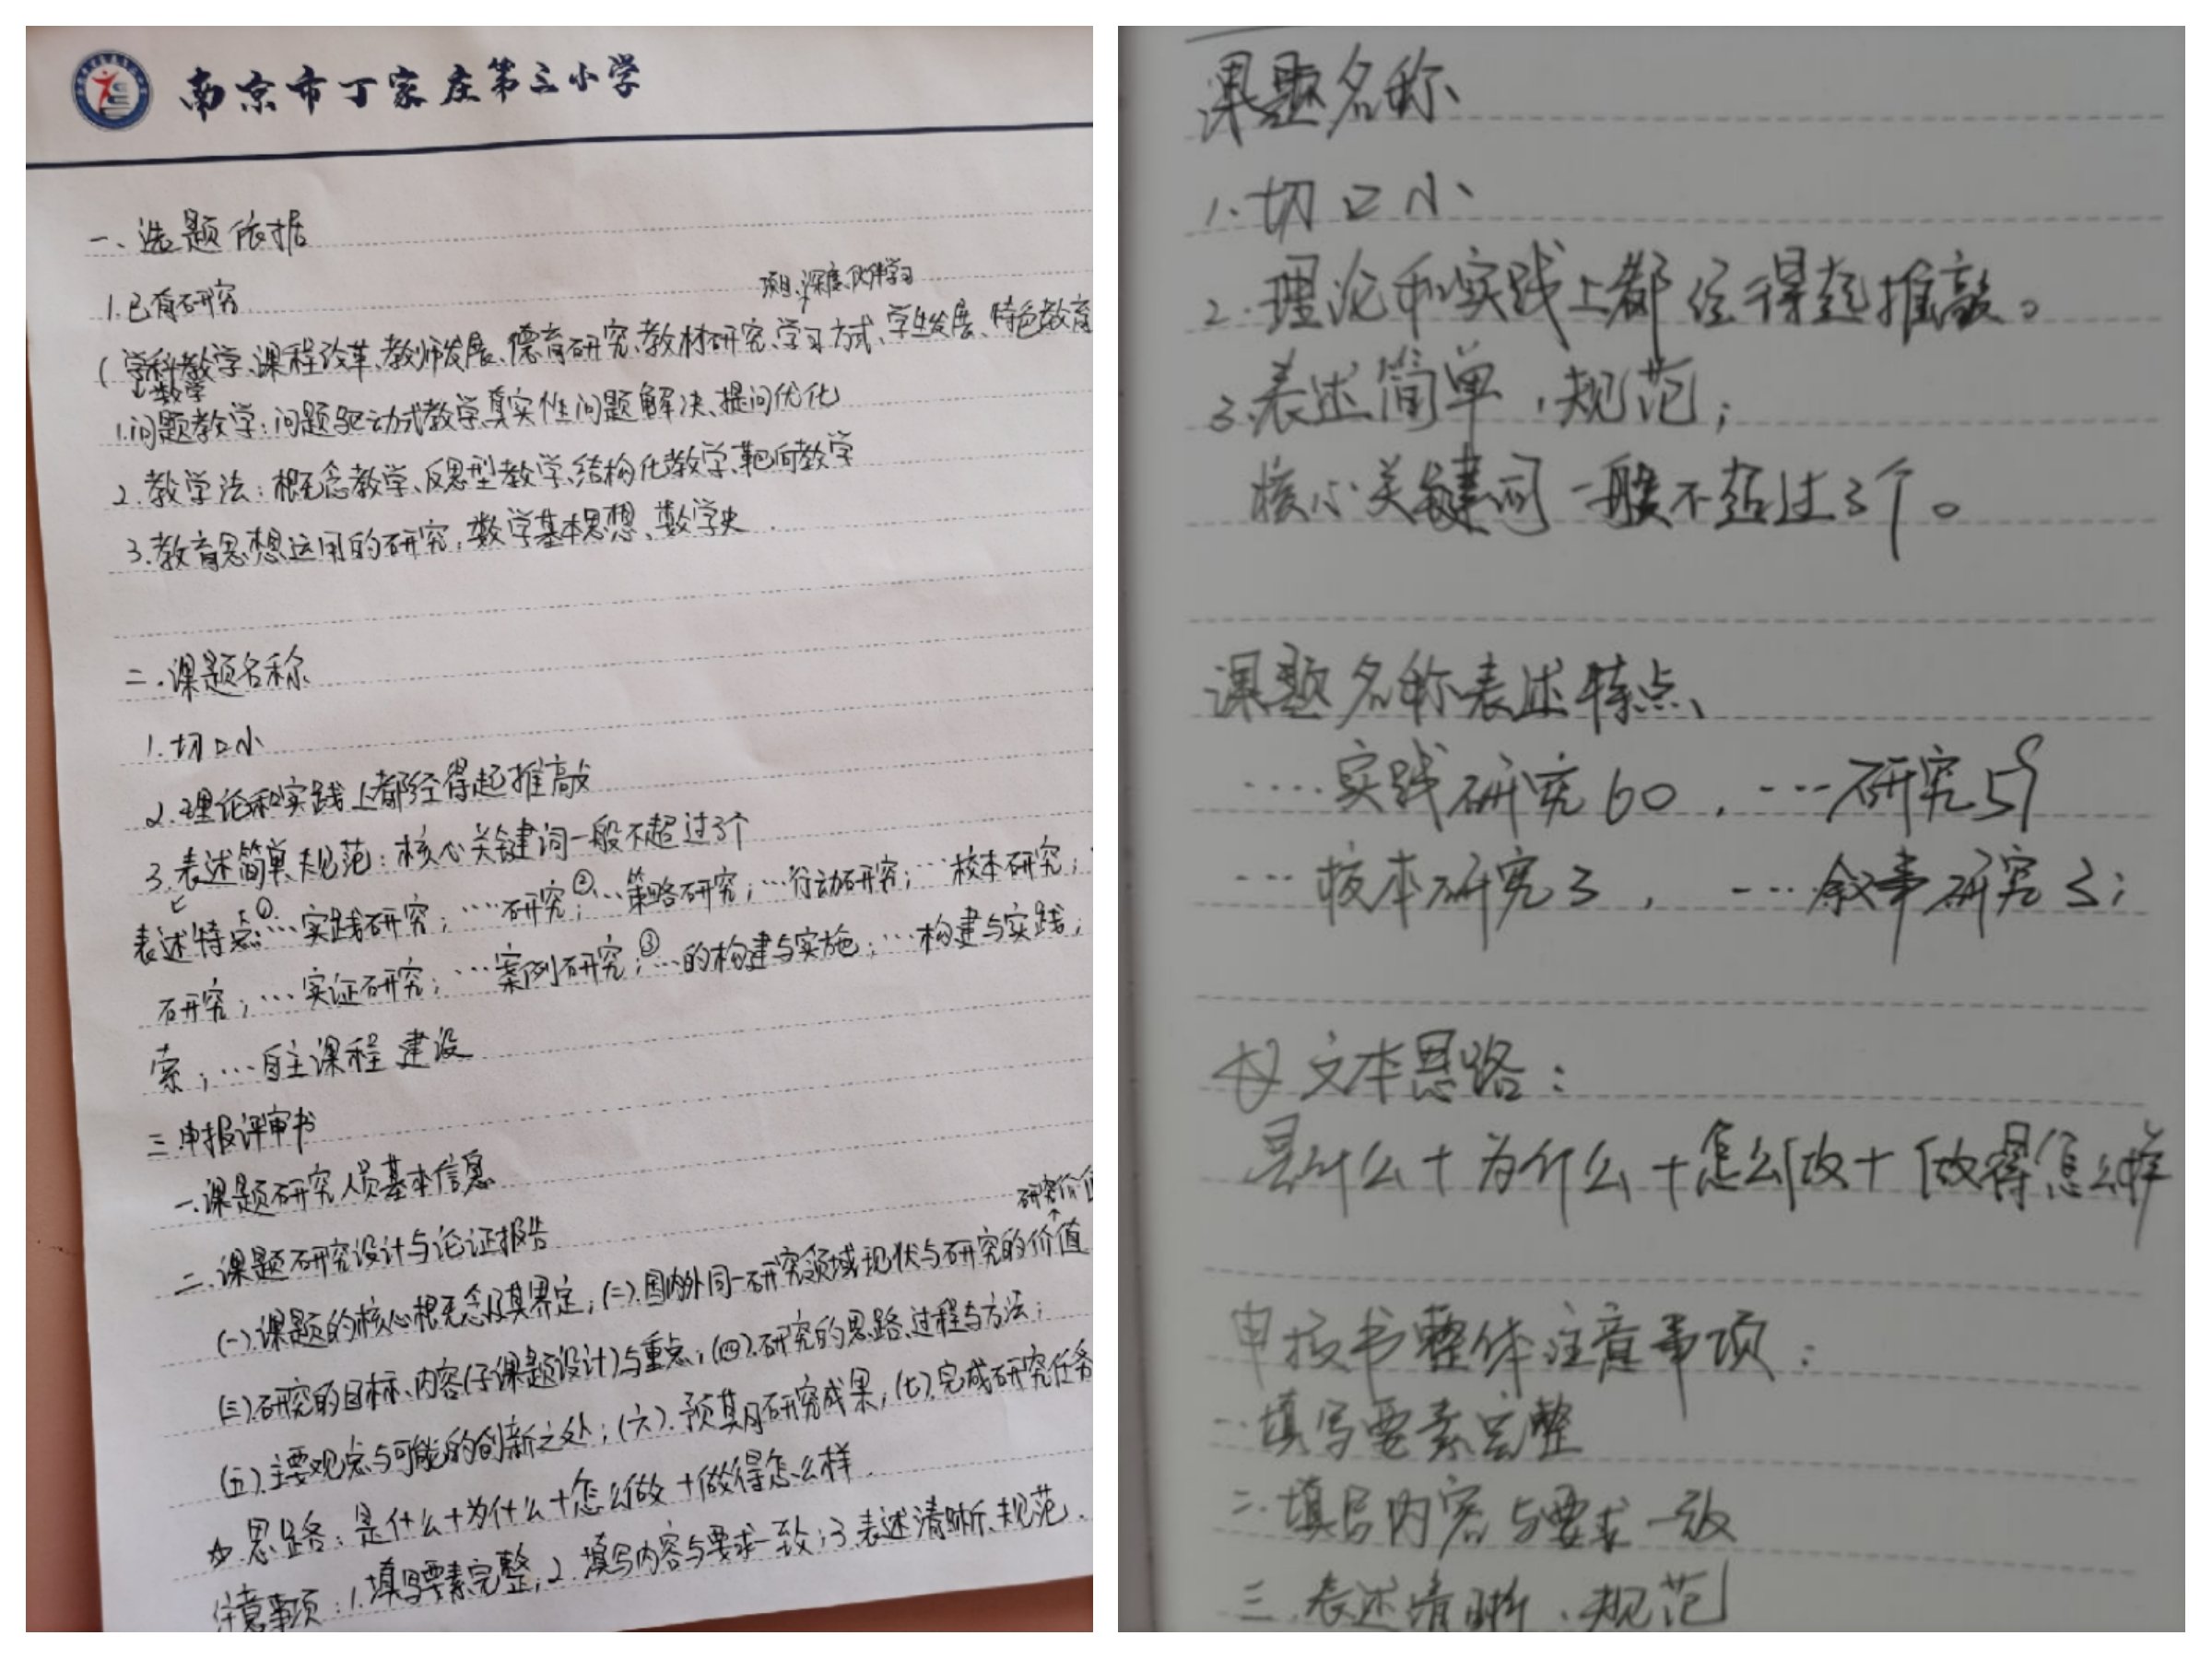 南京市丁家庄第三小学
一、选题依据
1.已有研究
项目、深度、伙伴学习
(学科教学、课程改革、教师发展、德育研究、教材研究、学习方式、学生发展、特色教育
数学
1.问题教学:问题驱动式教学、真实性问题解决、提问优化
2.教学法:概念教学、反思型教学、结构化教学、靶向教学
3.教育思想运用的研究,数学基本思想、数学史.
二.课题名称
1.切口小
2.理论和实践上都经得起推敲
3.表述简单、规范:核心关键词一般不超过3个
表述特点:①…实践研究;…研究;②…策略研究;…行动研究;…校本研究;
研究;…实证研究;…案例研究;③…的构建与实施;…构建与实践;
索;…自主课程建设
三.申报评审书
一.课题研究人员基本信息
二.课题研究设计与论证报告
研究价值
(一).课题的核心概念及其界定;(二).国内外同一研究领域现状与研究的价值
(三).研究的目标、内容(子课题设计)与重点;(四).研究的思路、过程与方法;
(五).主要观点与可能的创新之处;(六).预期研究成果;(七).完成研究任务
☆思路:是什么+为什么+怎么做+做得怎么样.
注意事项:1.填写要素完整;2.填写内容与要求一致;3.表述清晰、规范.
课题名称
1.切口小
2.理论和实践上都经得起推敲。
3.表述简单、规范;
核心关键词一般不超过3个。
课题名称表述特点、
....实践研究60,....研究59
...校本研究3,....叙事研究3;
☆文本思路:
是什么+为什么+怎么做+做得怎么样
申报书整体注意事项:
一.填写要素完整
二.填写内容与要求一致
三.表述清晰、规范